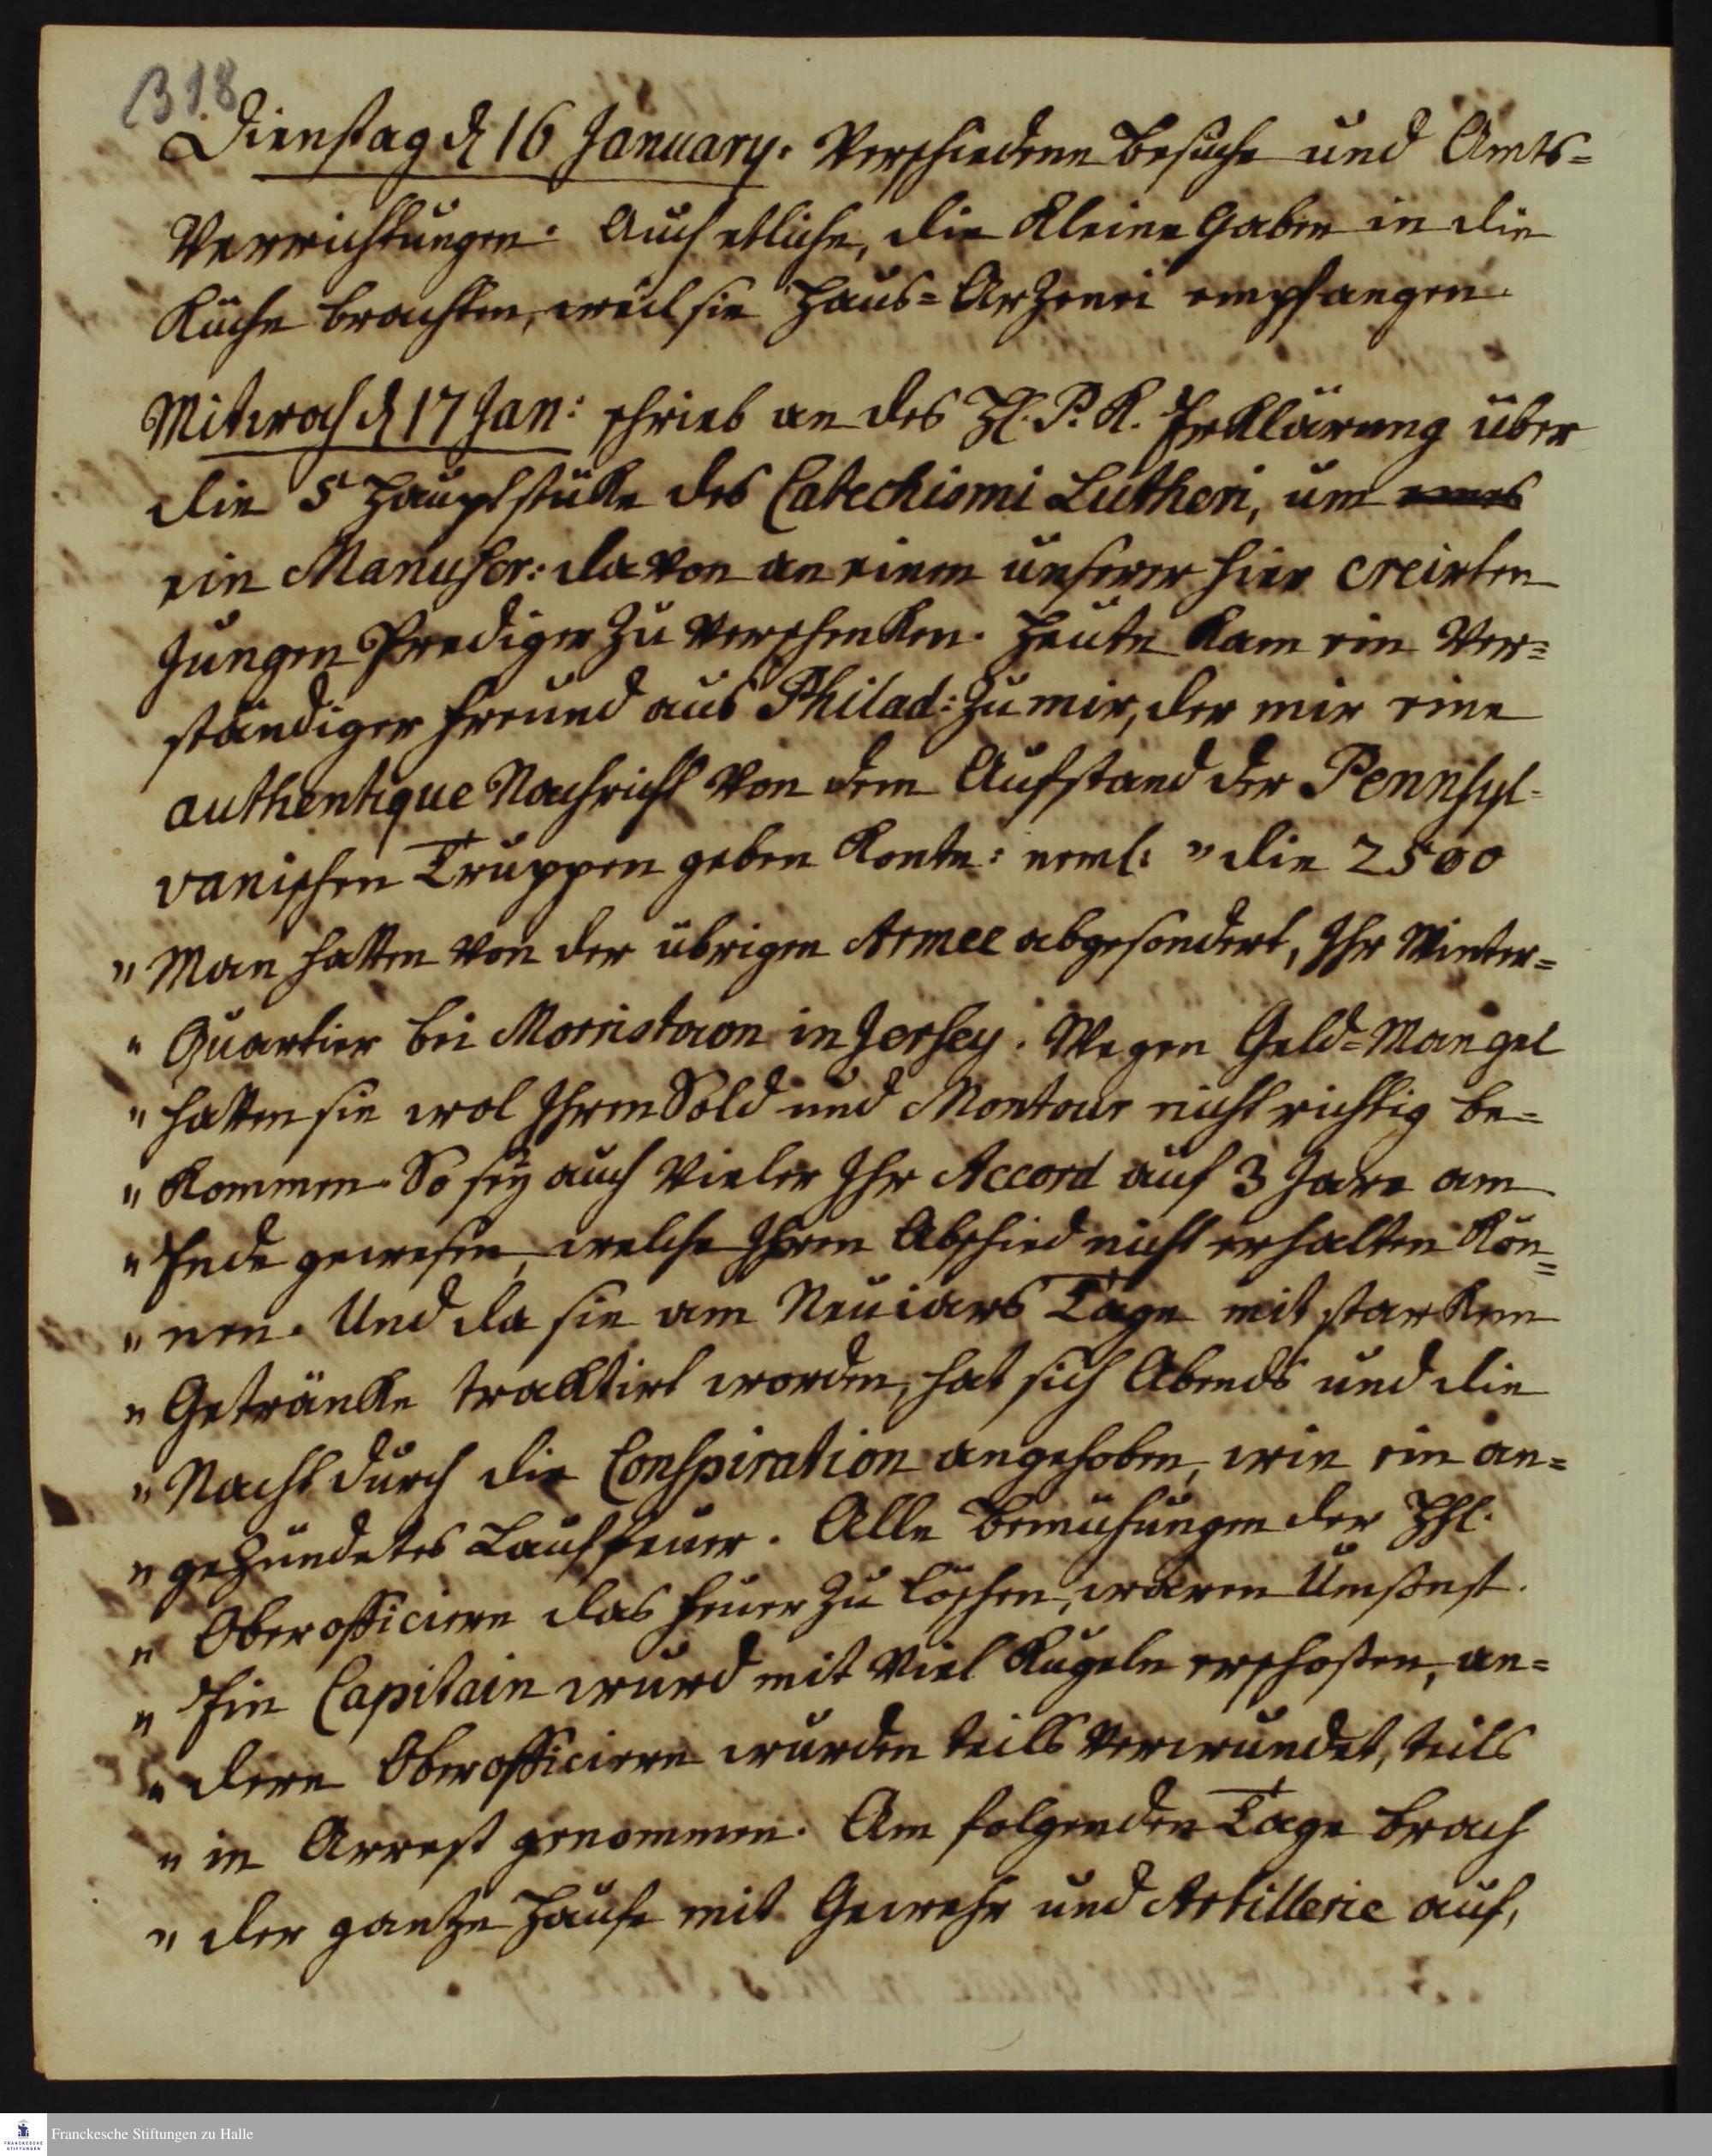 318
Dienstag d 16 January. Verschiedene Besuche und Amts=
Verrichtungen. Auch etliche, die kleine Gaben in die
Küche brachten, weil sie Haus=Arzenei empfangen.
Mitwoch d 17 Jan: schrieb an des H. P. K. Erklärung über
die 5 Hauptstüke des Catechismi Lutheri, um eines
ein Manuscr: davon an einem unserer hier creirten
Jungen Prediger zu verschenken. Heute kam ein Ver=
ständiger Freund aus Philad: zu mir, der mir eine
authentique Nachricht von dem Aufstand der Pennsyl-
vanischen Truppen geben konte: neml: " die 2500
" Man hatten von der übrigen Armee abgesondert, Ihr Winter=
" Quartier bei Morristown in Jersey. Wegen Geld=Mangel
" hatten sie wol Ihren Sold und Montour nicht richtig be=
" kommen. So sey auch Vieler Ihr Accord auf 3 Jare am
" Ende gewesen, welche Ihren Abschied nicht erhalten kön=
" nen. Und da sie am Neuiars Tage mit starkem
" Getränke traktirt worden, hat sich Abends und die
" Nacht durch die Conspiration angehoben, wie ein an=
" gezündetes Lauffeuer. Alle Bemühungen der HH.
" Oberofficiere das Feuer zu löschen, waren Umsonst.
" Ein Capitain wurd mit viel Kugeln erschoßen, an=
" dere Oberofficiere wurden teils verwundet, teils
" in Arrest genommen. Am folgenden Tage brach
" der gantze Haufe mit Gewehr und Artillerie auf,
FRANCKESCHE STIFTUNGEN
Franckesche Stiftungen zu Halle